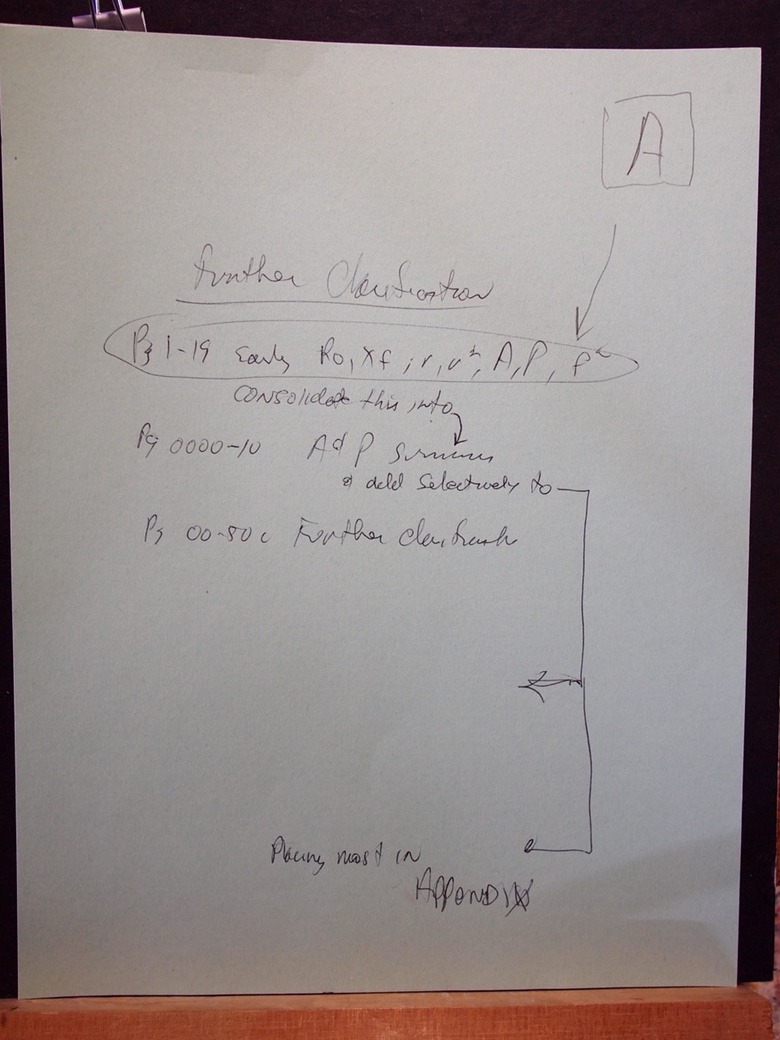 A
Further Clarification
Pg 1-19 Early Ro, Xf, r, A, P,
CONSOLIDATE this into
Pg 0000-10 A d P
& add Selectively to
Pg 00-80c Further
Placing most in
APPENDIX